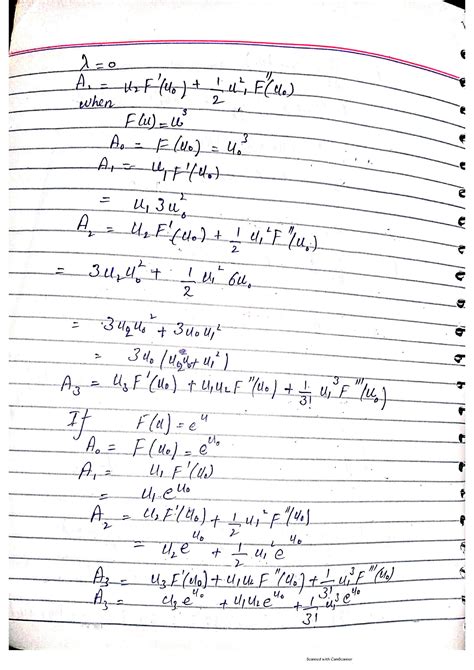 λ = 0
A₁ = u₂F'(u₀) + 1/2 u²₁ F''(u₀)
when
F(u) = u³
A₀ = F(u₀) = u₀³
A₁ = u₁F'(u₀)
= u₁3u₀²
A₂ = u₂F'(u₀) + 1/2 u₁²F''(u₀)
= 3u₂u₀² + 1/2 u₁² 6u₀
= 3u₂u₀² + 3u₀u₁²
= 3u₀(u₂u₀ + u₁²)
A₃ = u₃F'(u₀) + u₁u₂F''(u₀) + 1/3! u₁³F'''(u₀)
If F(u) = eᵘ
A₀ = F(u₀) = e^u₀
A₁ = u₁F'(u₀)
= u₁e^u₀
A₂ = u₂F'(u₀) + 1/2 u₁²F''(u₀)
= u₂e^u₀ + 1/2 u₁²e^u₀
A₃ = u₃F'(u₀) + u₁u₂F''(u₀) + 1/3! u₁³F'''(u₀)
A₃ = u₃e^u₀ + u₁u₂e^u₀ + 1/3! u₁³e^u₀
Scanned with CamScanner